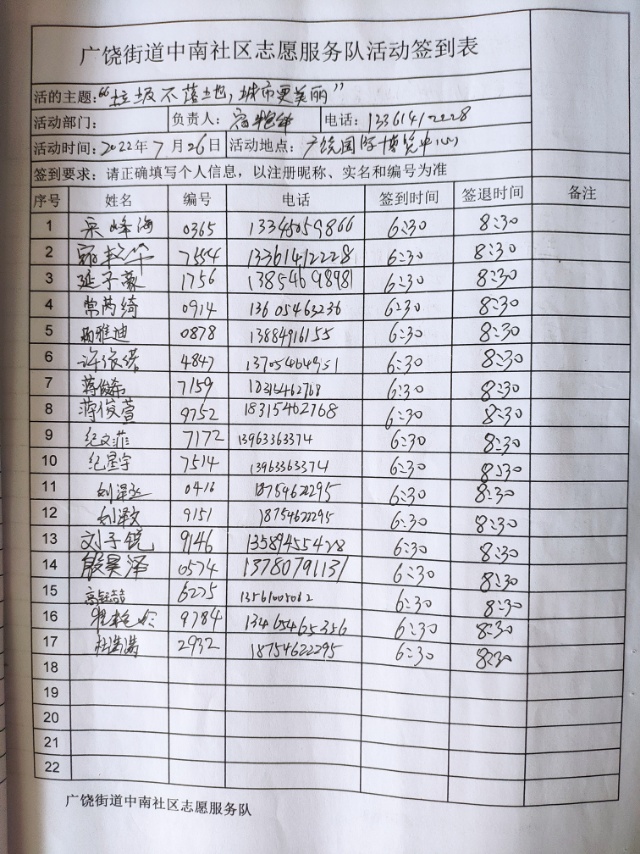 广饶街道中南社区志愿服务队活动签到表
活的主题:“垃圾不落地,城市更美丽”
活动部门: 负责人: 电话:13361412228
活动时间:2022年7月26日 活动地点:广饶国际博览中心
签到要求:请正确填写个人信息,以注册昵称、实名和编号为准
序号 姓名 编号 电话 签到时间 签退时间 备注
1 峰海 0365 13345059866 6:30 8:30
2 7554 13361412228 6:30 8:30
3 延子豪 1756 13854698981 6:30 8:30
4 常芮绮 0914 13605463236 6:30 8:30
5 雅迪 0878 13884916155 6:30 8:30
6 许 4847 13705464951 6:30 8:30
7 蒋俊 7159 18315462768 6:30 8:30
8 蒋俊萱 9752 18315462768 6:30 8:30
9 纪文菲 7172 13963363374 6:30 8:30
10 纪星宇 7514 13963363374 6:30 8:30
11 刘泽丞 0416 18754622295 6:30 8:30
12 刘泽文 9151 18754622295 6:30 8:30
13 刘子锐 9146 13589455428 6:30 8:30
14 殷昊泽 0574 13780791131 6:30 8:30
15 6275 13561005062 6:30 8:30
16 9784 13465465356 6:30 8:30
17 2932 18754622295 6:30 8:30
18
19
20
21
22
广饶街道中南社区志愿服务队